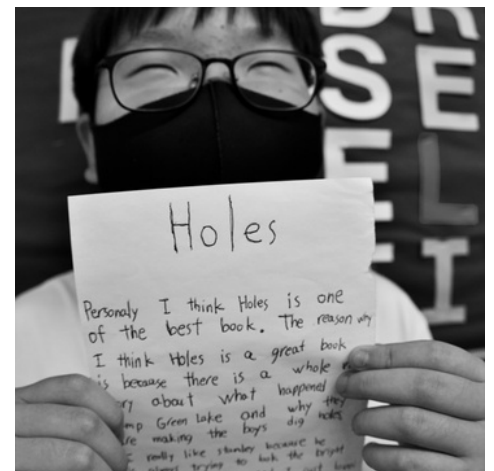 Holes
Personaly I think Holes is one
of the best book. The reason why
I think Holes is a great book
is because there is a whole
about what happened
Green Lake and why they
making the boys dig holes
I really like stanley because he
trying to the bright